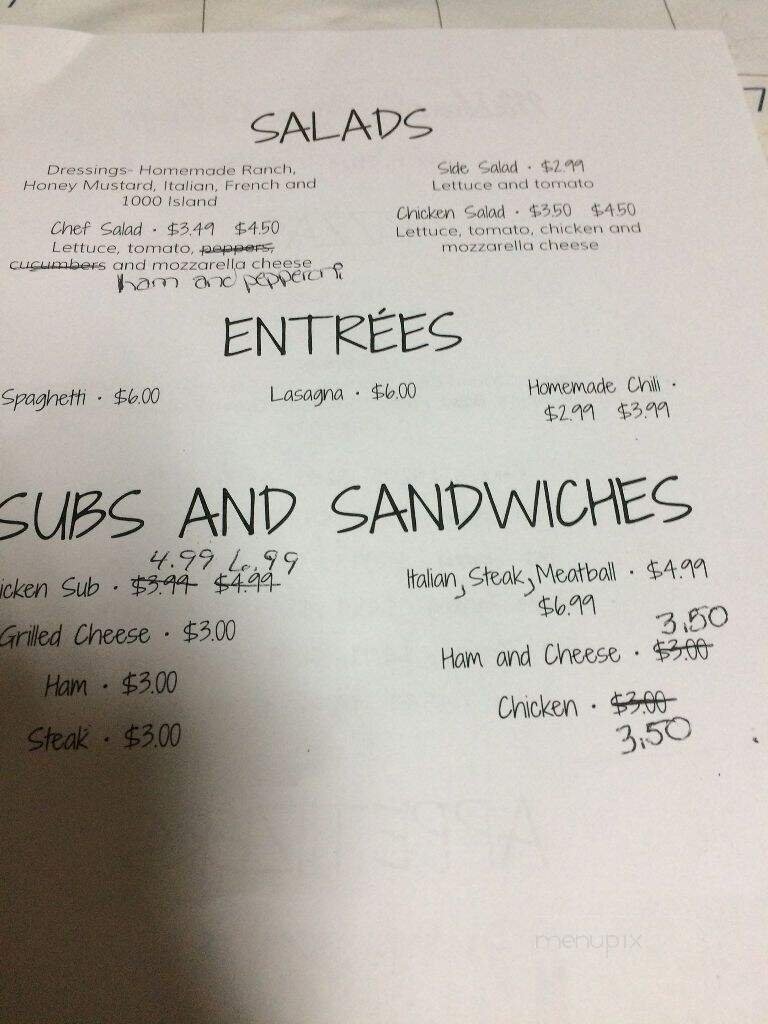 SALADS
Dressings- Homemade Ranch,
Honey Mustard, Italian, French and
1000 Island
Chef Salad · $3.49 $4.50
Lettuce, tomato, peppers,
cucumbers and mozzarella cheese
ham and pepperoni
Side Salad · $2.99
Lettuce and tomato
Chicken Salad · $3.50 $4.50
Lettuce, tomato, chicken and
mozzarella cheese
ENTRÉES
Spaghetti · $6.00
Lasagna · $6.00
Homemade Chili ·
$2.99 $3.99
SUBS AND SANDWICHES
4.99 6.99
icken Sub · $3.99 $4.99
Grilled Cheese · $3.00
Ham · $3.00
Steak · $3.00
Italian, Steak, Meatball · $4.99
$6.99
3.50
Ham and Cheese · $3.00
Chicken · $3.00
3.50
menupix